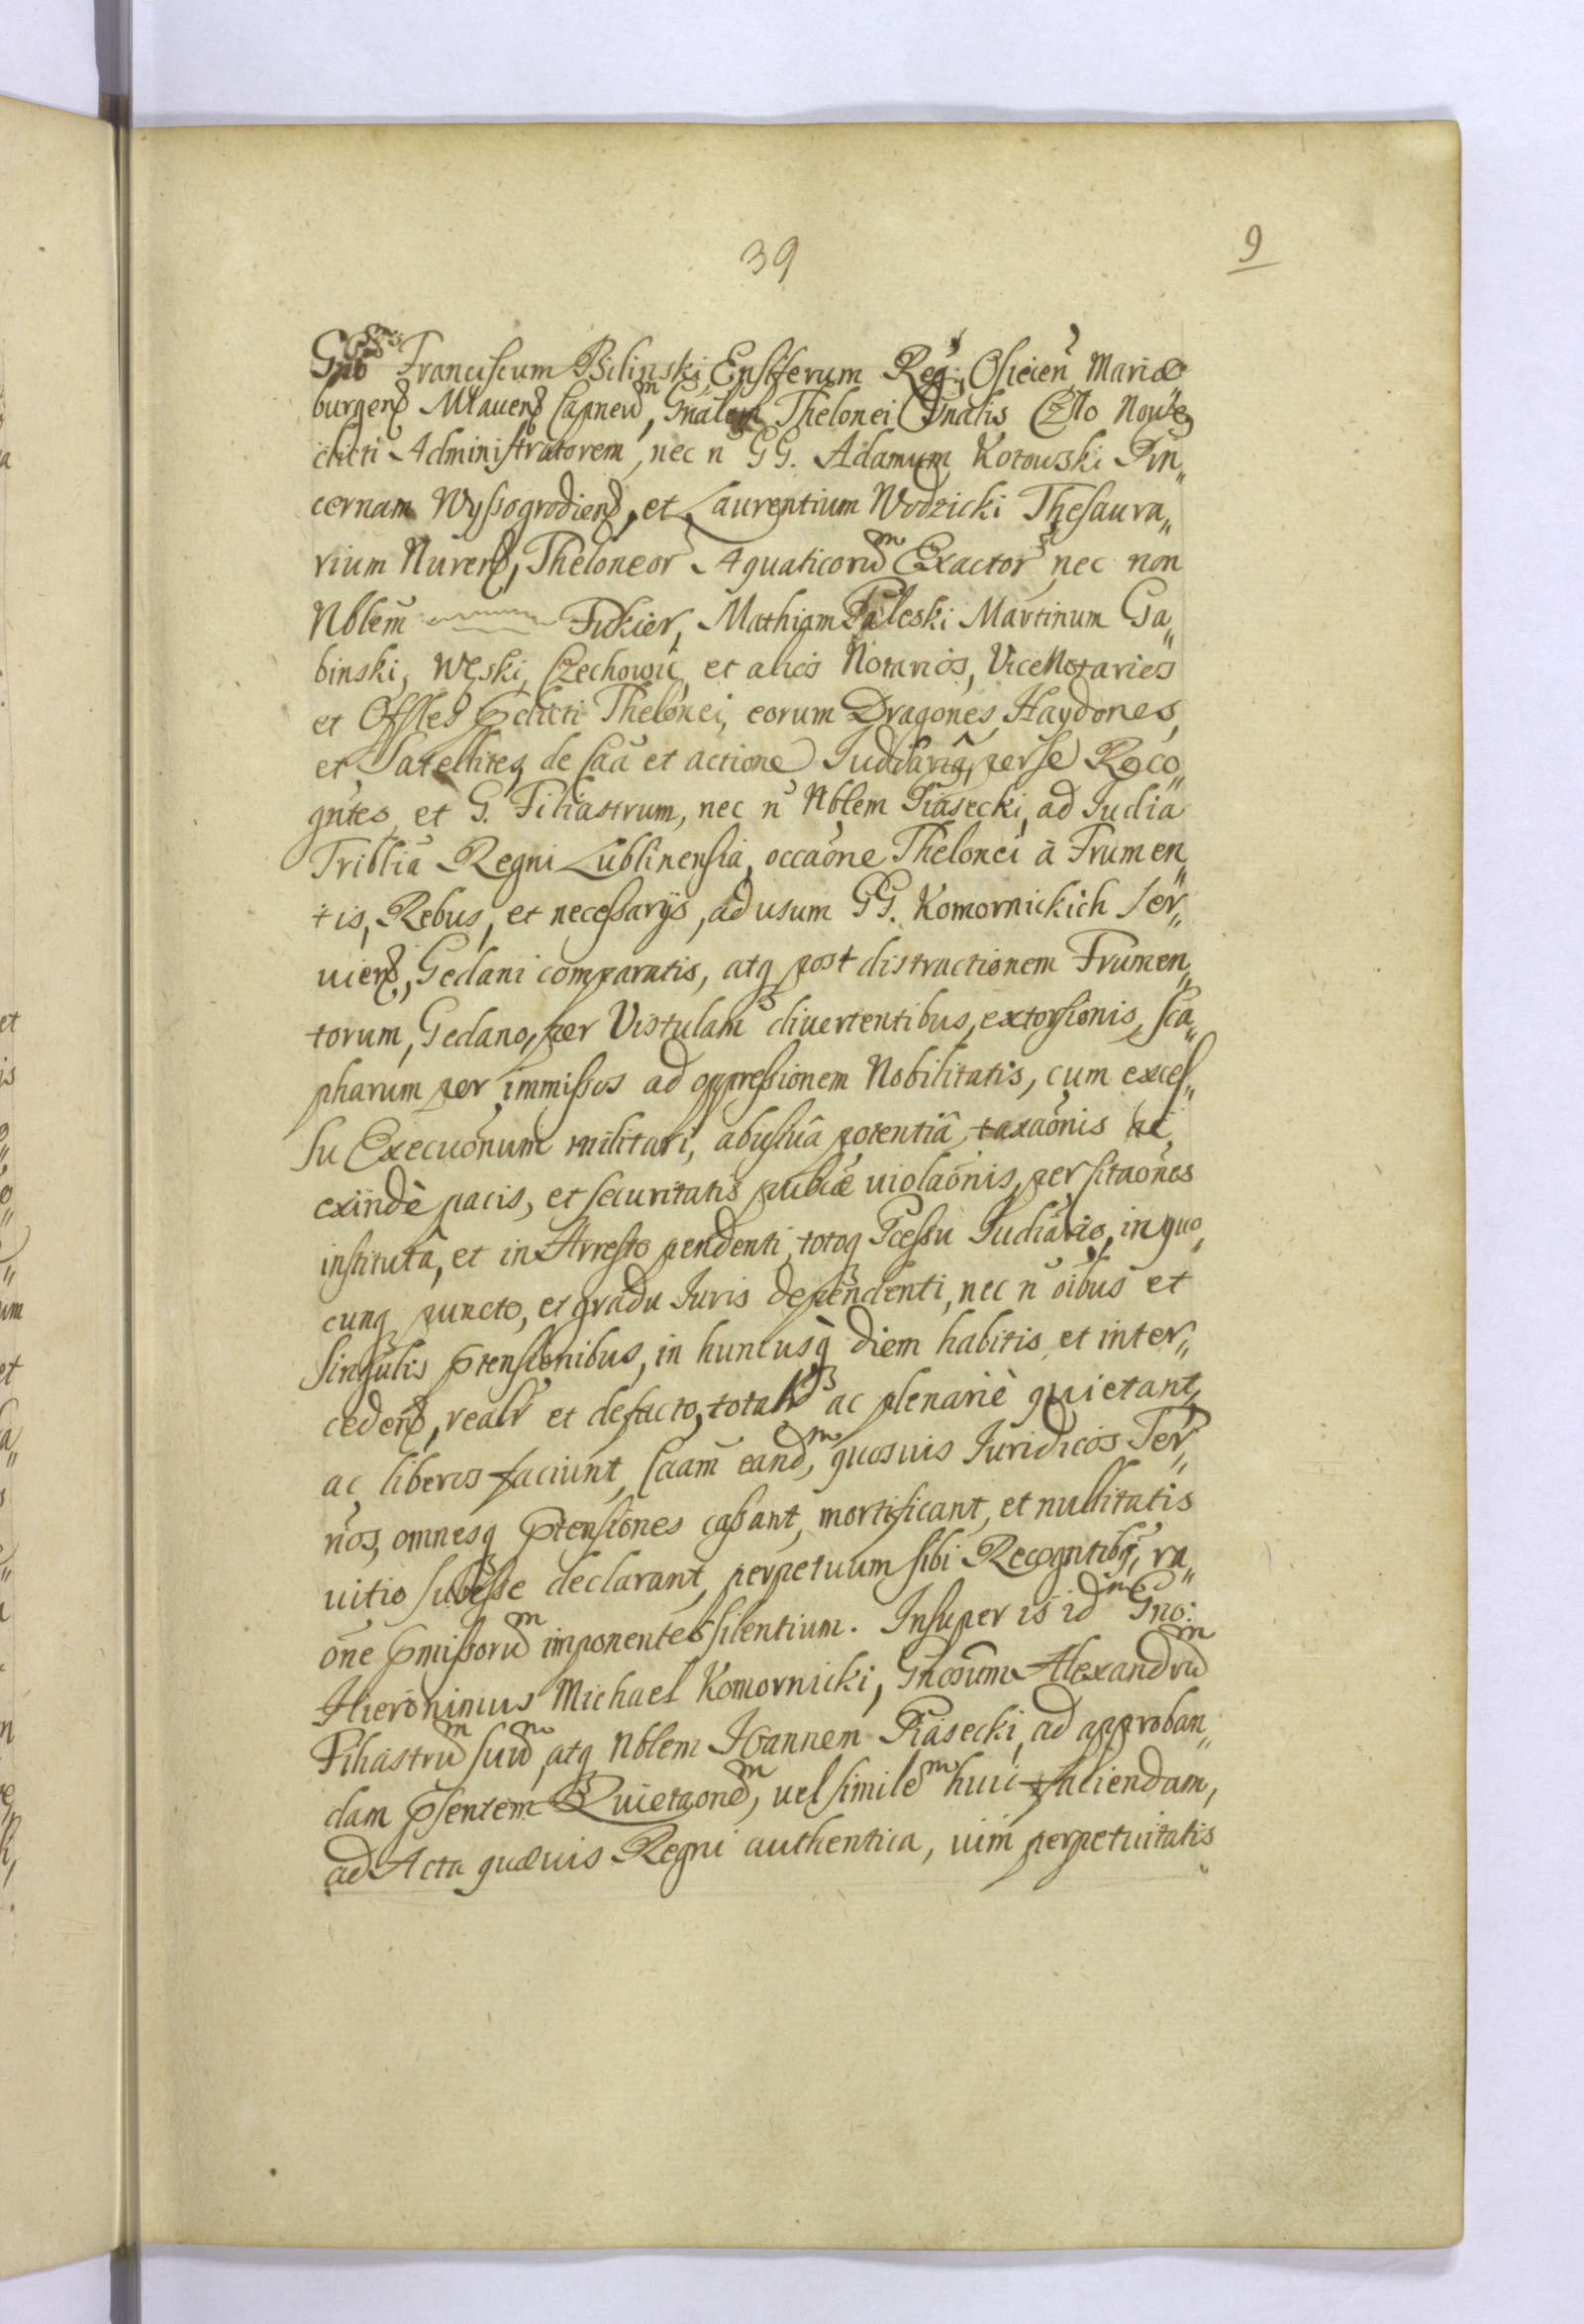 39
9
Franciscum Bilinski Ensiferum Reg: Osiecien Mariæ
burgen Mławen Capneum, Gnalem Thelonei Gnalis Czło Nowe
dicti Administratorem, nec n GG. Adamum Kotowski Pin„
cernam Wyssogrodien, et Laurentium Wodzicki Thesaura„
rium Nuren, Theloneor Aquaticorum Exactor nec non
Nblem Fukier, Mathiam Paleski Martinum Ga„
binski, Węski, Czechowic, et alios Notarios, ViceNotarios
et Offles Pdicti Thelonei, eorum Dragones, Haydones,
et Satellites, de Caa et actione Judiaria, per se Reco„
gntes, et G. Filiastrum, nec n Nblem Piasecki, ad Judia
Triblia Regni Lublinensia, occaone Thelonei à Frumen„
tis, Rebus, et necessarÿs, ad usum GG. Komornickich Ser„
uien, Gedani comparatis, atq post distractionem Frumen„
torum, Gedano, per Vistulam divertentibus, extorsionis, sca„
pharum per immissos ad oppressionem Nobilitatis, cum exces„
su Execuonum militari, abusiuâ potentiâ, taxaonis ac
exindè pacis, et securitatis publicæ uiolaonis, per sitaones
institutâ, et in Arresto pendenti, totoq Pcessu Judiario, in quo„
cunq puncto, et gradu Juris dependenti, nec n oibus et
singulis Ptensionibus, in huncusq diem habitis, et inter„
ceden, realr et defacto, totalr ac plenariè quietant,
ac liberos faciunt, Caam eandem, quosuis Juridicos Ter„
nos, omnesq Ptensiones cassant, mortificant, et nullitatis
uitio subesse declarant, perpetuum sibi Recogntibq, ra„
one Pmissorum imponentes silentium. Insuper is idem Gnos:
Hieronimus Michael Komornicki, Gnosum Alexandrum
Filiastrum suum, atq Nblem Joannem Piasecki, ad approban„
dam Psentem Quietaonem, uel similem huic faciendam,
ad Acta quæuis Regni authentica, uim perpetuitatis